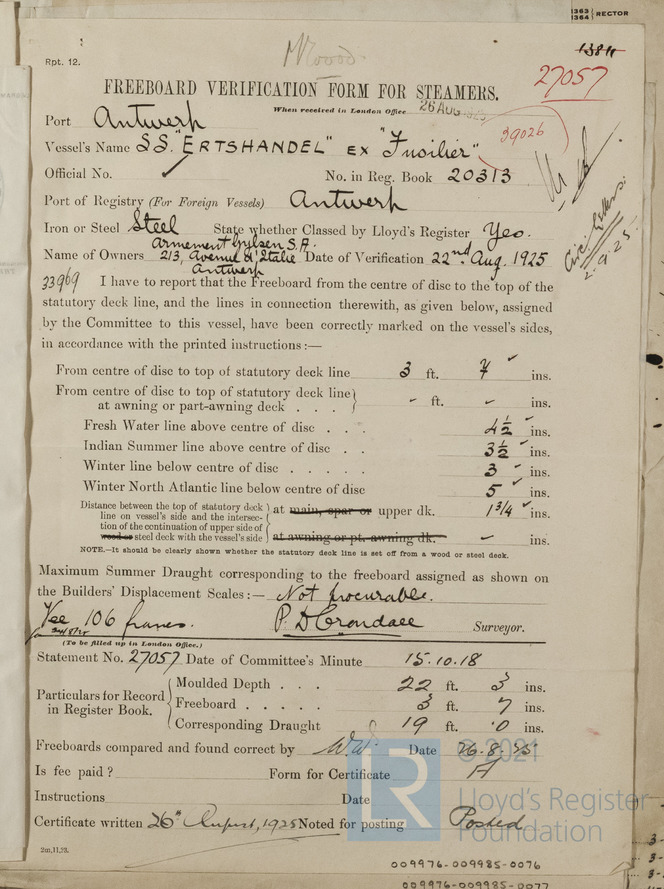 1363
1364 RECTOR
Rpt. 12.
27057
FREEBOARD VERIFICATION FORM FOR STEAMERS.
When received in London Office 26 AUG 1925
39026
Port Antwerp
Vessel's Name SS. "ERTSHANDEL" EX "Fusilier"
Official No. No. in Reg. Book 20313
Port of Registry (For Foreign Vessels) Antwerp
Iron or Steel Steel State whether Classed by Lloyd's Register Yes.
Armement Gylsen S.A.
Name of Owners 213, Avenue d'Italie Date of Verification 22nd Aug. 1925
Antwerp
2.9.25
33969 I have to report that the Freeboard from the centre of disc to the top of the
statutory deck line, and the lines in connection therewith, as given below, assigned
by the Committee to this vessel, have been correctly marked on the vessel's sides,
in accordance with the printed instructions :—
From centre of disc to top of statutory deck line 3 ft. 7 ins.
From centre of disc to top of statutory deck line
at awning or part-awning deck . . . - ft. - ins.
Fresh Water line above centre of disc . . . 4 1/2 ins.
Indian Summer line above centre of disc . . 3 1/2 ins.
Winter line below centre of disc . . . . . 3 ins.
Winter North Atlantic line below centre of disc 5 ins.
Distance between the top of statutory deck
line on vessel's side and the intersec- at main, spar or upper dk. 1 3/4 ins.
tion of the continuation of upper side of
wood or steel deck with the vessel's side at awning or pt. awning dk. - ins.
NOTE.—It should be clearly shown whether the statutory deck line is set off from a wood or steel deck.
Maximum Summer Draught corresponding to the freeboard assigned as shown on
the Builders' Displacement Scales :— Not procurable.
Fee 106 francs. P. D. Crondace Surveyor.
(To be filled up in London Office.)
Statement No. 27057 Date of Committee's Minute 15.10.18
Particulars for Record
in Register Book.
Moulded Depth . . . 22 ft. 3 ins.
Freeboard . . . . . 3 ft. 7 ins.
Corresponding Draught 19 ft. 0 ins.
Freeboards compared and found correct by WW Date 26.8.25
Is fee paid ? Form for Certificate A
Instructions Date
Certificate written 26th August, 1925 Noted for posting Posted
2m,11,23.
© 2021
LR
Lloyd's Register
Foundation
009976-009985-0076
009976-009985-0077